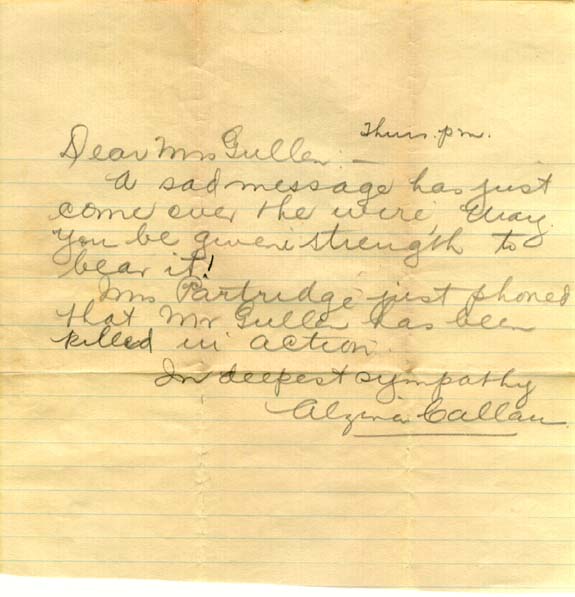 Thurs. pm.
Dear Mrs Gullen: —
A sad message has just
come over the wire, May
you be given strength to
bear it!
Mrs Partridge just phoned
that Mr Gullen has been
killed in action.
In deepest sympathy
Callan